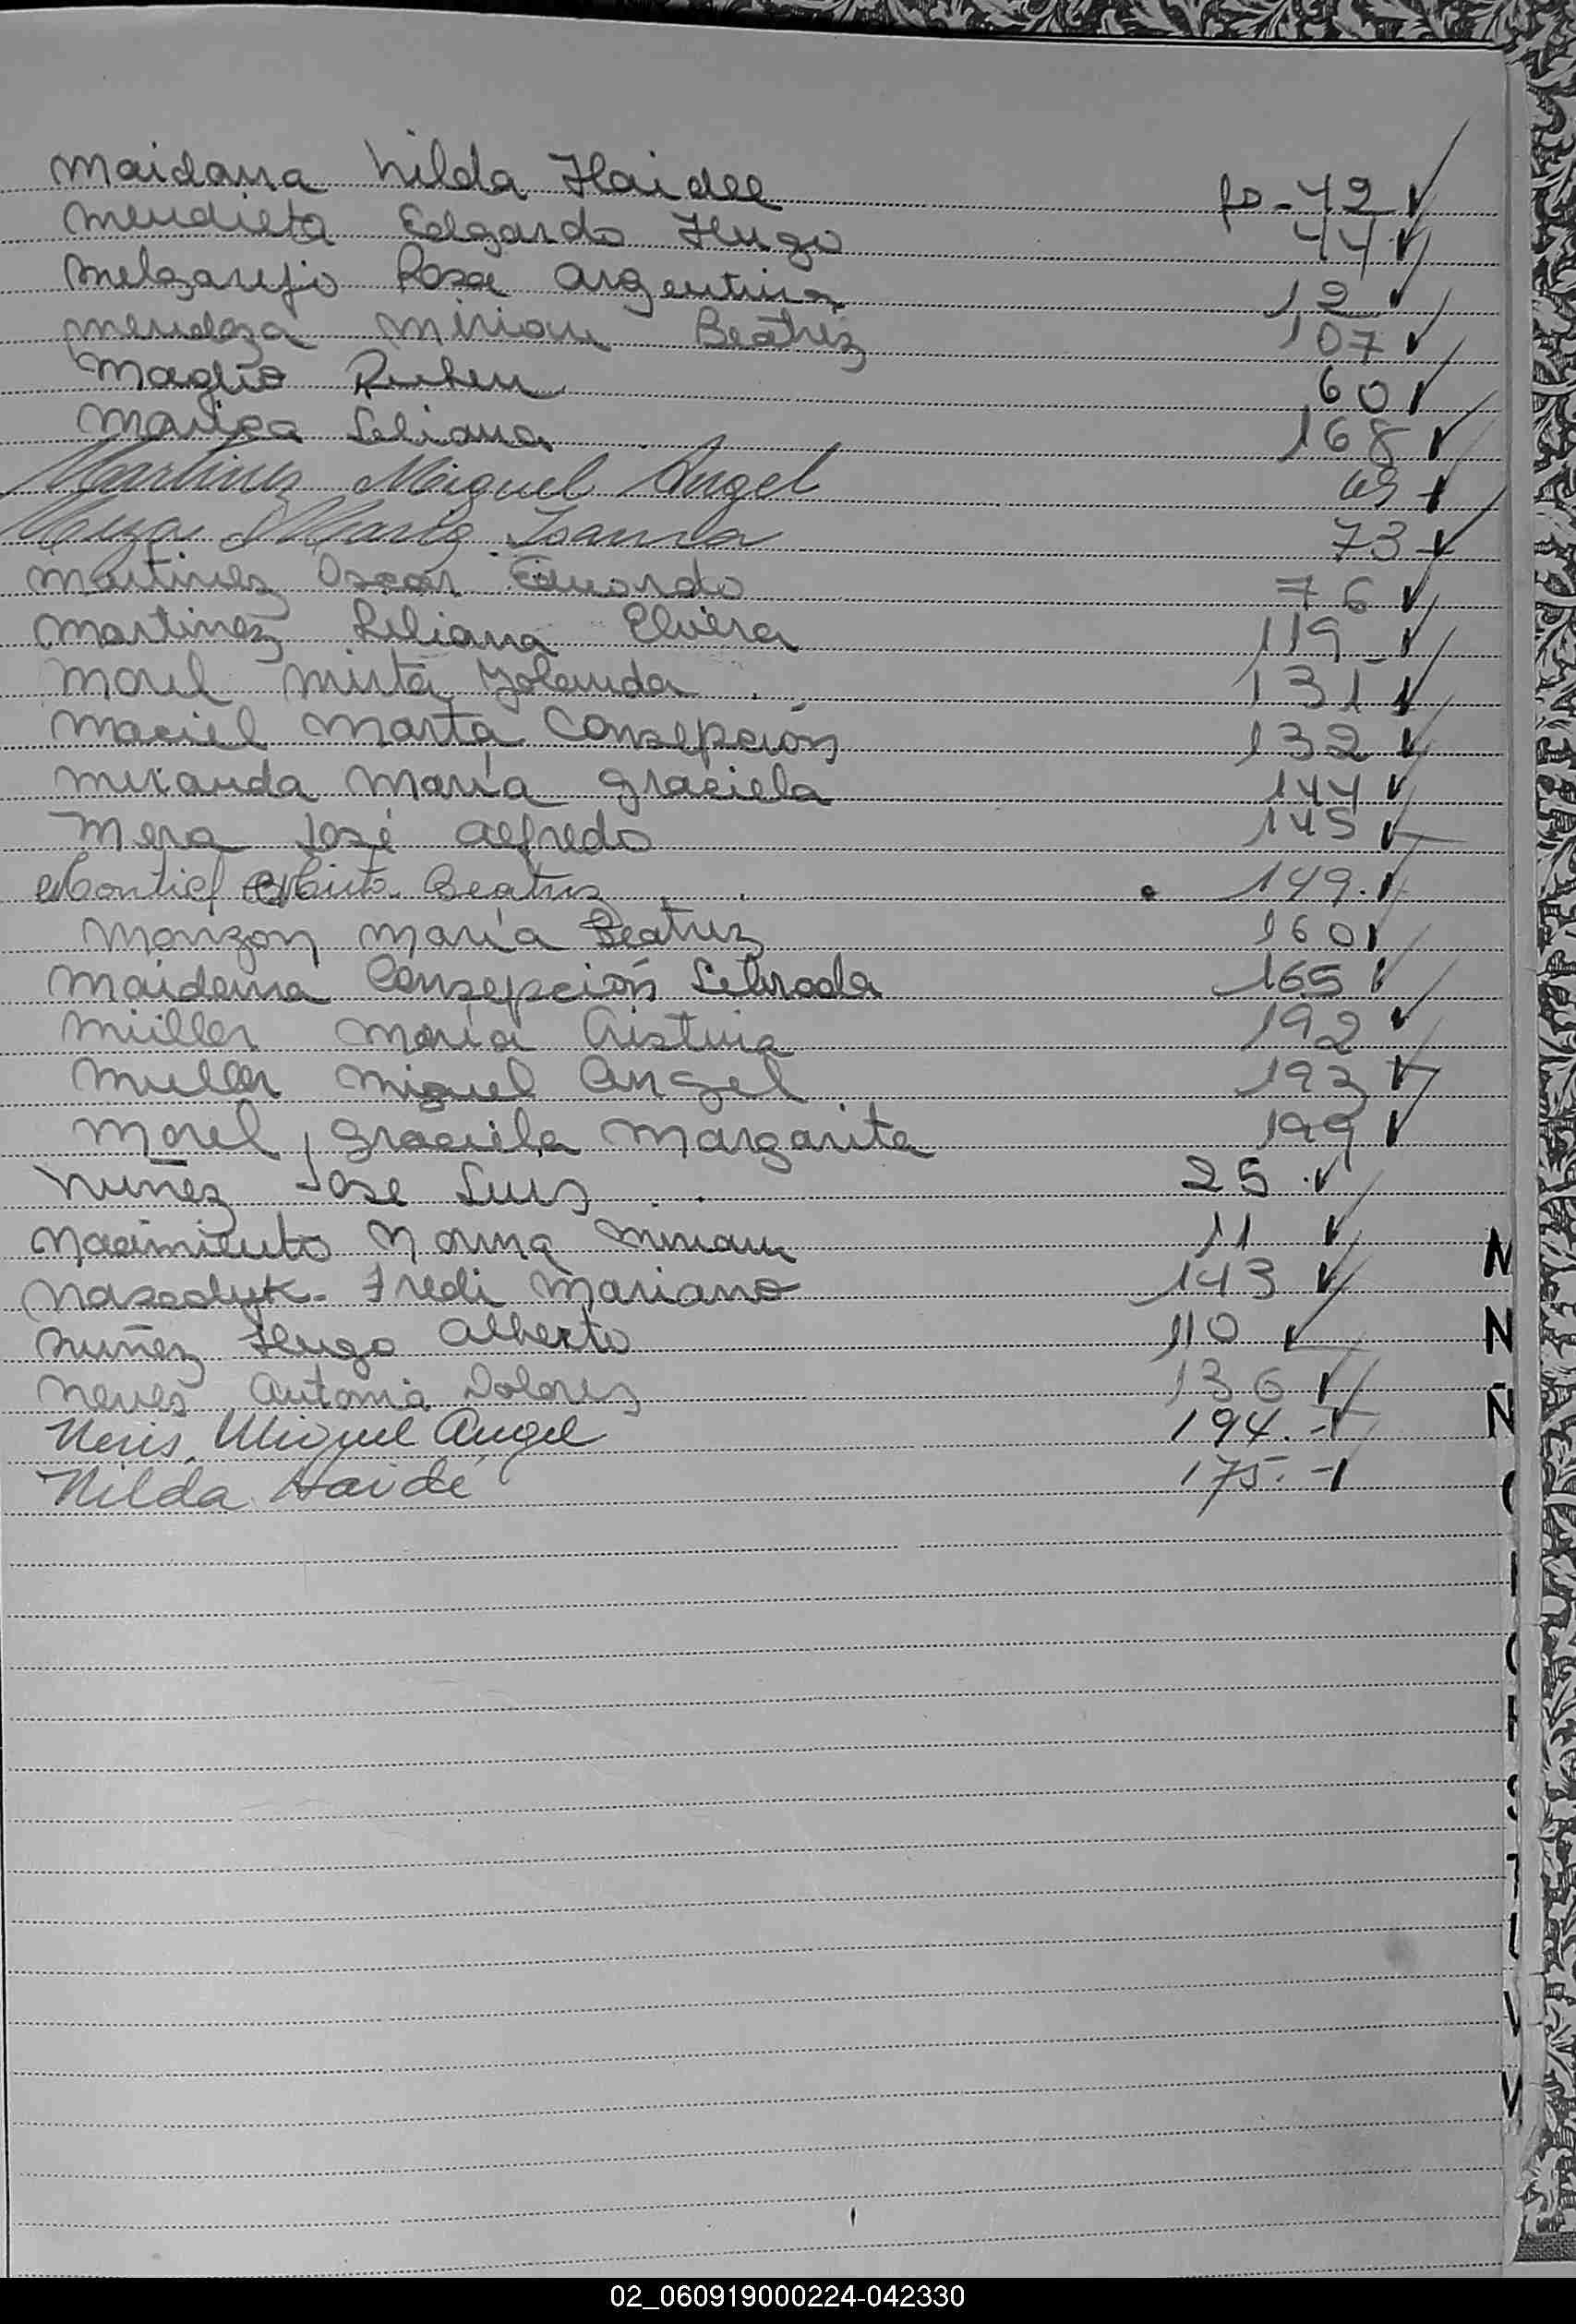 Maidana Nilda Haidee fo - 42 ✓
Mendieta Edgardo Hugo 44 ✓
Melgarejo Rosa Argentina 12 ✓
Mendoza Mirian Beatriz 107 ✓
Maglio Ruben 60 ✓
Liliana 168 ✓
Martinez Miguel Angel 49 ✓
Maria 73 ✓
Martinez Oscar Eduardo 76 ✓
Martinez Liliana Elvira 119 ✓
Morel Mirta Yolanda 131 ✓
Maciel Marta Consepción 132 ✓
Miranda María Graciela 144 ✓
Mera José Alfredo 145 ✓
Montiel Mirta Beatriz 149. ✓
Monzon María Beatriz 160 ✓
Maidana Consepción Librada 165 ✓
Müller María Cristina 192 ✓
Muller Miguel Angel 193 ✓
Morel, Graciela Margarita 199 ✓
Nuñez Jose Luis 25 ✓
Nacimiento Norma Mirian 11 ✓
Fredi Mariano 143 ✓
Nuñez Hugo Alberto 110 ✓
Neves Antonia Dolores 136 ✓
Neris, Miguel Angel 194. - ✓
Nilda Haidé 175. - ✓
N
N
Ñ
02_060919000224-042330